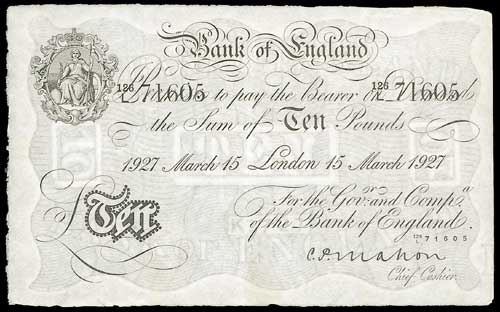 Bank of England
126 L 71605 126 L 71605
I Promise to pay the Bearer on Demand
the Sum of Ten Pounds
1927 March 15 London 15 March 1927
For the Govr. and Compa.
of the Bank of England.
£ Ten
126 L 71605
C.P. Mahon
Chief Cashier.